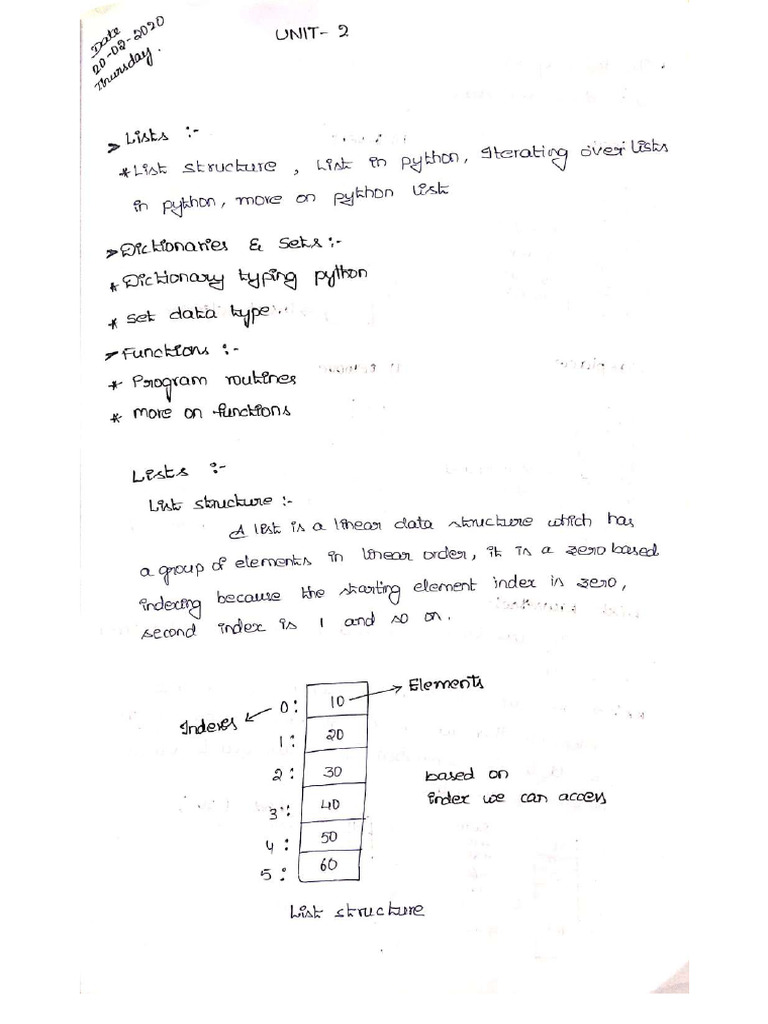 Date
20-02-2020
Thursday.
UNIT- 2
> Lists :-
* List structure, List in python, Iterating over lists
in python, more on python list
> Dictionaries & Sets:-
* Dictionary typing python
* set data type..
> Functions :-
* Program routines
* more on functions
Lists :-
List structure :-
A list is a linear data structure which has
a group of elements in linear order, it is a zero based
indexing because the starting element index is zero,
second index is 1 and so on.
Indexes
Elements
0: 10
1: 20
2: 30
3: 40
4: 50
5: 60
based on
index we can access
List structure